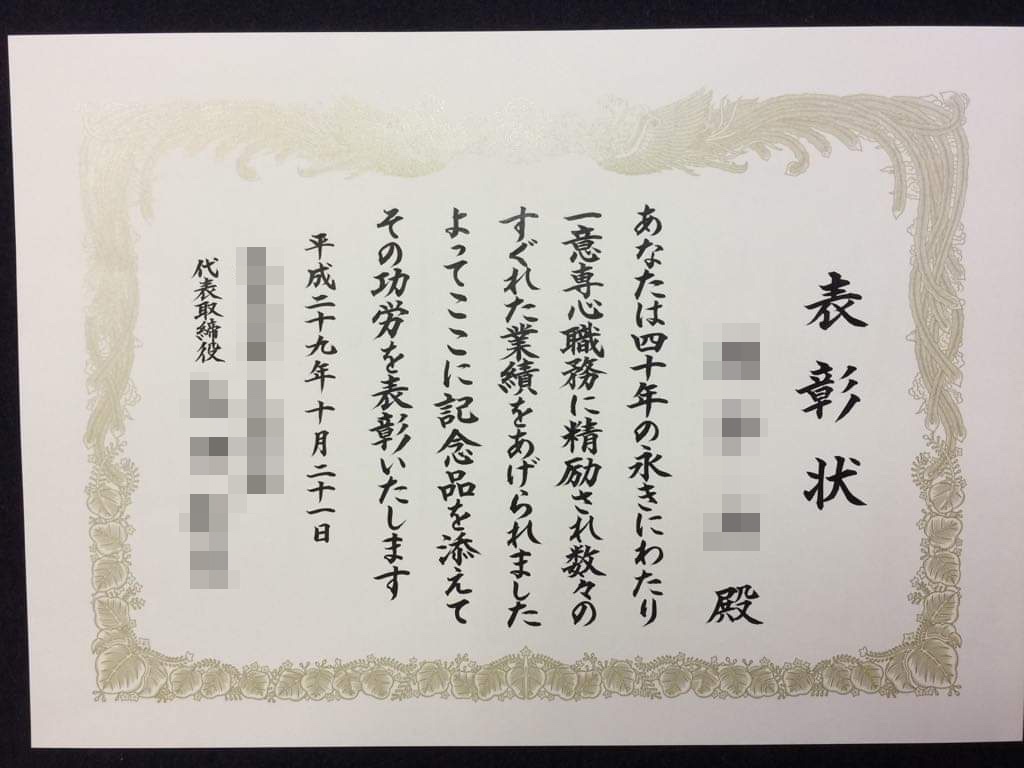 表彰状
殿
あなたは四十年の永きにわたり
一意専心職務に精励され数々の
すぐれた業績をあげられました
よってここに記念品を添えて
その功労を表彰いたします
平成二十九年十月二十一日
代表取締役